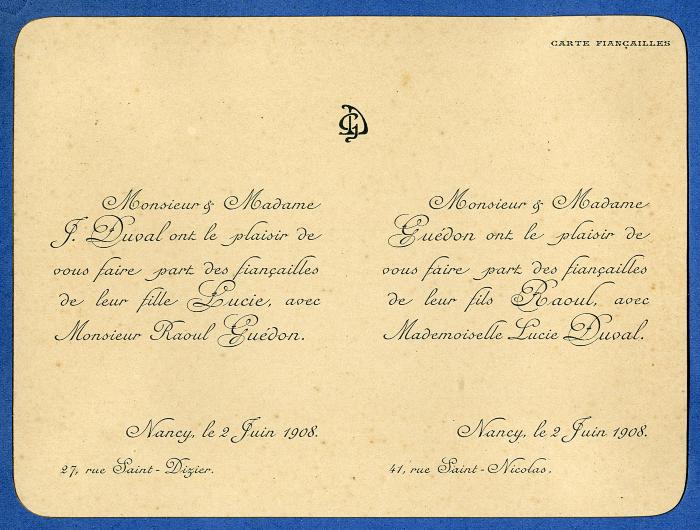 CARTE FIANÇAILLES
GD
Monsieur & Madame
J. Duval ont le plaisir de
vous faire part des fiançailles
de leur fille Lucie, avec
Monsieur Raoul Guédon.
Nancy, le 2 Juin 1908.
27, rue Saint-Dizier.
Monsieur & Madame
Guédon ont le plaisir de
vous faire part des fiançailles
de leur fils Raoul, avec
Mademoiselle Lucie Duval.
Nancy, le 2 Juin 1908.
41, rue Saint-Nicolas.